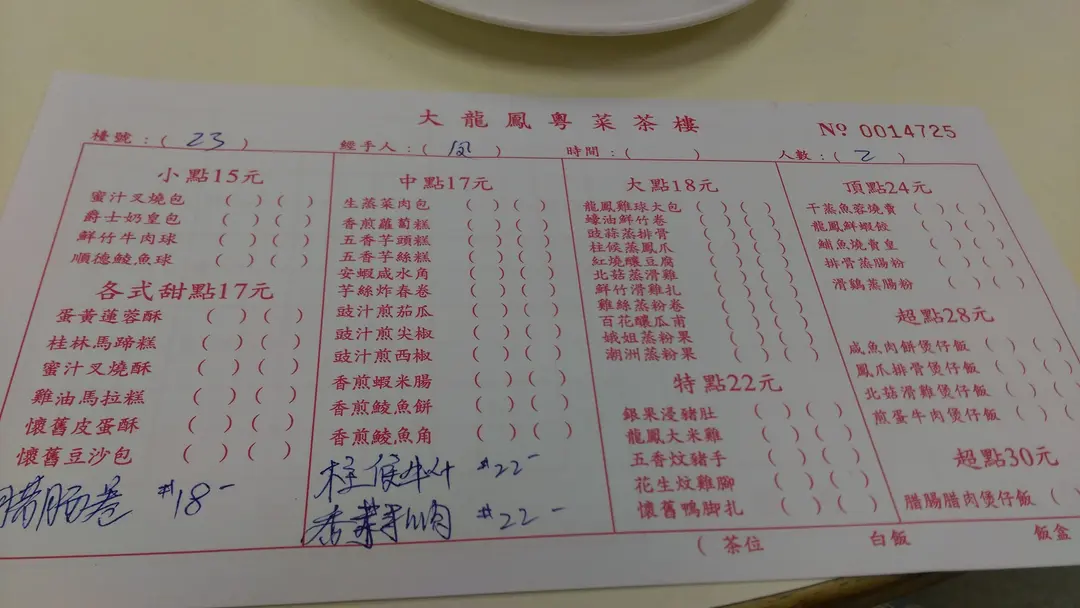 大龍鳳粵菜茶樓
Nº 0014725
檯號:( 23 )
經手人:( 凤 )
時間:( )
人數:( 2 )
小點15元
蜜汁叉燒包 ( ) ( )
爵士奶皇包 ( ) ( )
鮮竹牛肉球 ( ) ( )
順德鯪魚球 ( ) ( )
各式甜點17元
蛋黃蓮蓉酥 ( ) ( )
桂林馬蹄糕 ( ) ( )
蜜汁叉燒酥 ( ) ( )
雞油馬拉糕 ( ) ( )
懷舊皮蛋酥 ( ) ( )
懷舊豆沙包 ( ) ( )
腊肠卷 #18-
中點17元
生蒸菜肉包 ( ) ( )
香煎蘿蔔糕 ( ) ( )
五香芋頭糕 ( ) ( )
五香芋絲糕 ( ) ( )
安蝦咸水角 ( ) ( )
芋絲炸春卷 ( ) ( )
豉汁煎茄瓜 ( ) ( )
豉汁煎尖椒 ( ) ( )
豉汁煎西椒 ( ) ( )
香煎蝦米腸 ( ) ( )
香煎鯪魚餅 ( ) ( )
香煎鯪魚角 ( ) ( )
柱侯牛 #22-
香 #22-
大點18元
龍鳳雞球大包 ( ) ( )
蠔油鮮竹卷 ( ) ( )
豉蒜蒸排骨 ( ) ( )
柱候蒸鳳爪 ( ) ( )
紅燒釀豆腐 ( ) ( )
北菇蒸滑雞 ( ) ( )
鮮竹滑雞扎 ( ) ( )
雞絲蒸粉卷 ( ) ( )
百花釀瓜甫 ( ) ( )
娥姐蒸粉果 ( ) ( )
潮洲蒸粉果 ( ) ( )
特點22元
銀果浸豬肚 ( ) ( )
龍鳳大米雞 ( ) ( )
五香炆豬手 ( ) ( )
花生炆雞腳 ( ) ( )
懷舊鴨脚扎 ( ) ( )
頂點24元
干蒸魚蓉燒賣 ( ) ( )
龍鳳鮮蝦餃 ( ) ( )
鮑魚燒賣皇 ( ) ( )
排骨蒸腸粉 ( ) ( )
滑鷄蒸腸粉 ( ) ( )
超點28元
咸魚肉餅煲仔飯 ( ) ( )
鳳爪排骨煲仔飯 ( ) ( )
北菇滑雞煲仔飯 ( ) ( )
煎蛋牛肉煲仔飯 ( ) ( )
超點30元
腊腸腊肉煲仔飯 ( ) (
( 茶位
白飯
飯盒